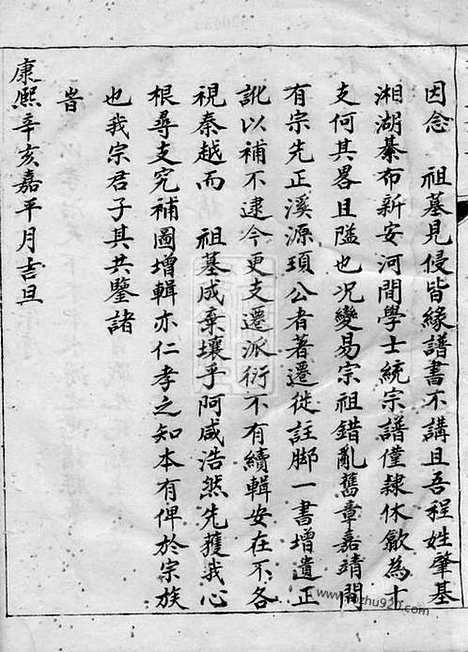 因念　祖墓見侵皆緣譜書不講且吾程姓肇基
湘湖綦布新安河間學士統宗譜僅隸休歙為十
支何其畧且隘也况變易宗祖錯亂舊章嘉靖間
有宗先正溪源頊公者著遷徙註脚一書增遺正
訛以補不逮今更支遷派衍不有續輯安在不各
視秦越而　祖墓咸棄壤乎阿咸浩然先獲我心
根尋支究補圖增輯亦仁孝之知本有俾於宗族
也我宗君子其共鑒諸
旹
康熙辛亥嘉平月吉旦